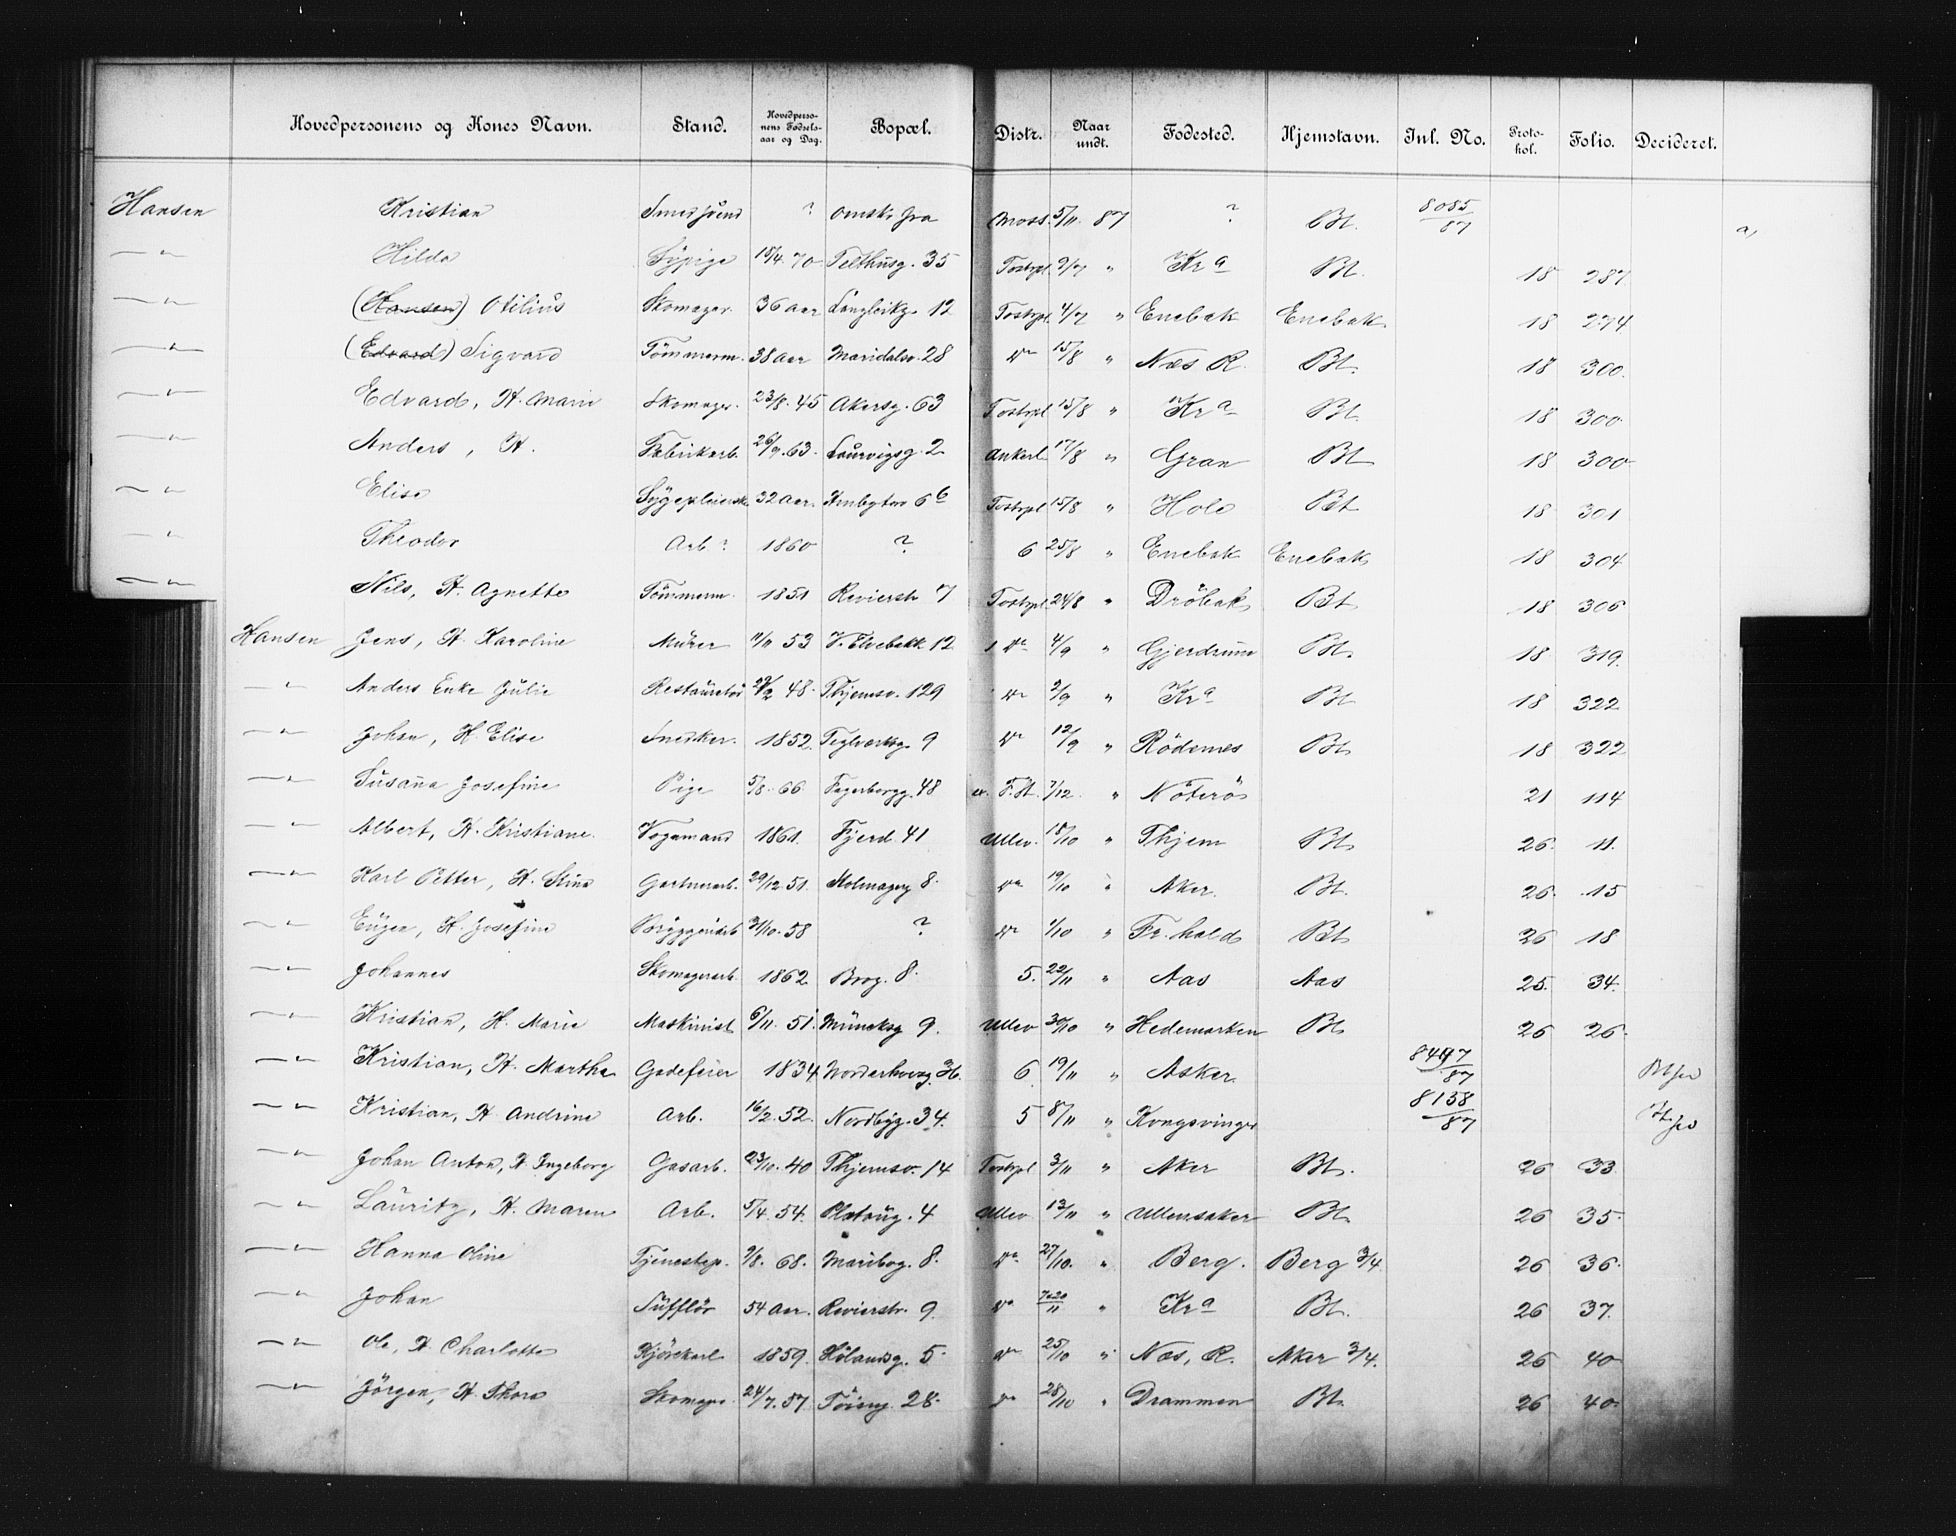 Hovedpersonens og Kones Navn. Stand. Hovedpersonens Fødselsaar og Dag. Bopæl. Distr. Naar undt. Fødested. Hjemstavn. Inl. No. Protokol. Folio. Decideret.
Hansen Kristian Smedsvend ? ønsk. fra Moss. 5/11 87 ? Bt. 8085/87 a,
—"— Hilda Sypige 18/4 70 Telthusg. 35 Tostrpl 9/7 " Kra Bt. 18 287.
—"— (Hansen) Otilius Skomager. 36 aar Langleikg. 12 Tostrpl. 4/7 " Enebak Enebak. 18 274
—"— (Edvard) Sigvard Tømmerm. 38 aar Maridalsv. 28 do 15/8 " Næs R. Bt. 18 300.
—"— Edvard, H. Marie Skomager. 23/8. 45 Akersg. 63 Tostrpl 15/8 " Kra Bt. 18 300.
—"— Anders, H. Fabrikarb. 26/9. 63. Laurvigsg. 2 Ankerl 17/8 " Gran Bt 18 300
—"— Elise Sygepleierske 32 aar. 6b Tostrpl 15/8 " Hole Bt 18 301
—"— Theodor Arb? 1860 ? 6 25/8 " Enebak Enebak 18 304
—"— Nils, H. Agnette Tømmerm. 1851 Revierstr 7 Tostrpl 24/8 " Drøbak Bt 18 306
Hansen Jens, H. Karoline Murer 11/11 53 V. Elvebakk 12 1 do 4/9 " Gjerdrum Bt. 18 319.
—"— Anders Enke Julie Restauratør 48. Thjemsv. 129 do 2/9 " Kra Bt 18 322
—"— Johan, H. Elise Snedker. 1852. Teglverksg. 9 do 12/9 " Rødenes Bt 18 322
—"— Susanna Josefine Pige 5/8. 66. Fagerborgg. 48 F.H. 7/12. " Nøterø 21 114
—"— Albert, H. Kristiane. Vognmand 1861. Fjerd. 41 Ullev. 18/10 " Thjem Bt 26. 11.
—"— Karl Petter, H. Stina Gartnerarb. 29/12. 51. Holmagerg 8. do 19/10 " Aker. Bt. 26. 15
—"— Eugen, H. Josefine Bryggeriarb 31/10. 58 ? do 1/10 " Fr.hald Bt 26 18
—"— Johannes Skomagerarb. 1862. Brog. 8. 5. 22/11 " Aas Aas 25. 34.
—"— Kristian, H. Marie Maskinist 6/11. 51. Muncksg 9. Ullev 30/10 " Hedemarken Bt 26 26.
—"— Kristian, H. Martha Gadefeier 1834 Norderhovsg. 6 19/11 " Asker. 8497/87
—"— Kristian, H. Andrine Arb. 16/2. 52. Nordbyg. 34. 5 8/11 " Kongsvinger 8158/87
—"— Johan Anton, H. Ingeborg Gasarb. 23/10. 40 Thjemsv. 14 Tostrpl 3/11 " Aker Bt. 26 33
—"— Lauritz, H. Maren Arb. 5/4. 54. Platoug. 4 Ullev 13/11 " Ullensaker Bt. 26 35.
—"— Hanna Oline Tjenestep. 9/8. 68. Maribog. 8. do 27/10. " Berg. Berg 3/4 26 36.
—"— Johan Sufflør 54 aar. Revierstr. 9 do 7 & 20/11 " Kra Bt. 26 37.
—"— Ole, H. Charlotte Kjørekarl 1859. Hølandsg. 5. do 25/10 " Næs, R. Aker 3/4. 26 40
—"— Jørgen, H. Thora Skomager. 24/7. 57 Tøieng 28. do 28/10 " Drammen Bt. 26 40.